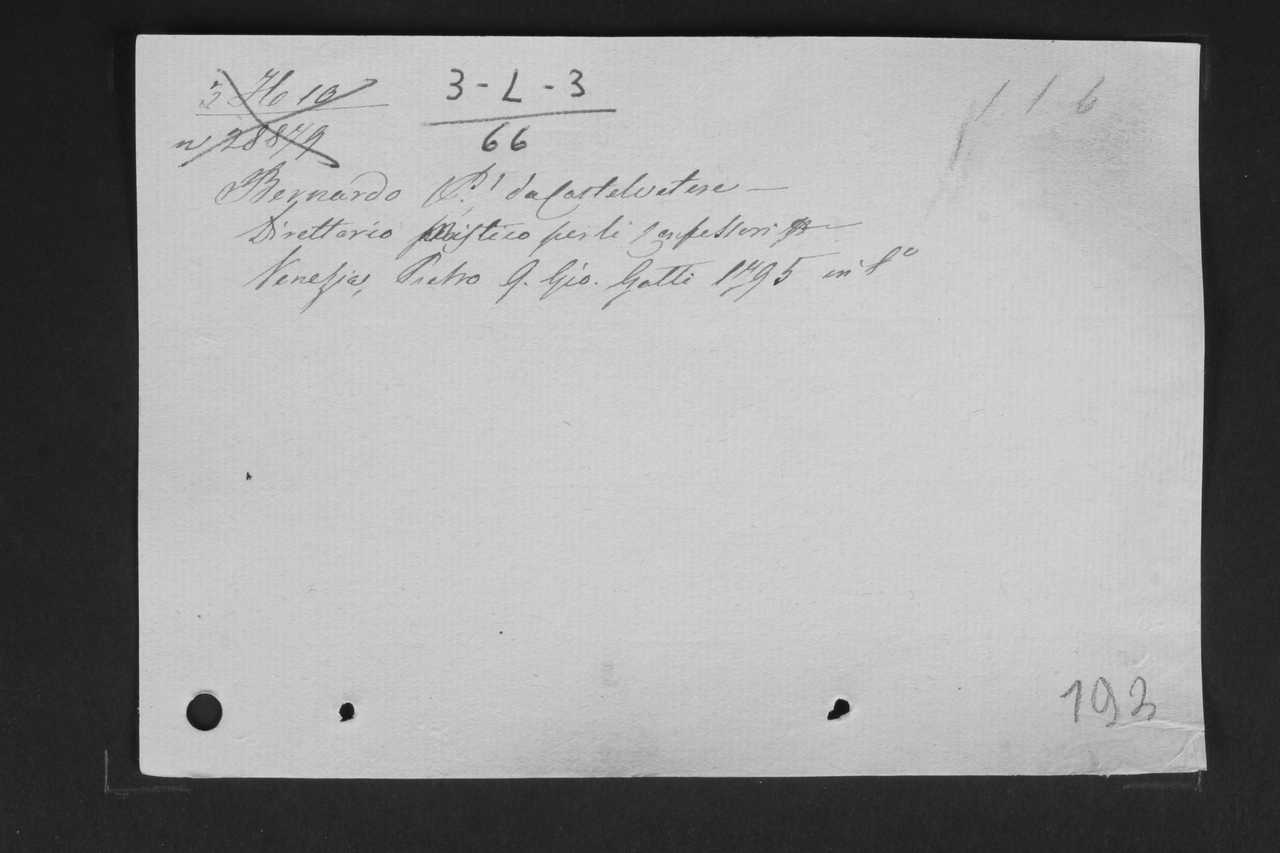 3 H 10
n 28879
3-L-3
66
116
Bernardo (P.) da Castelvetere —
Direttorio mistico per li confessori —
Venezia, Pietro q. Gio. Gatti 1795 in 8°
193